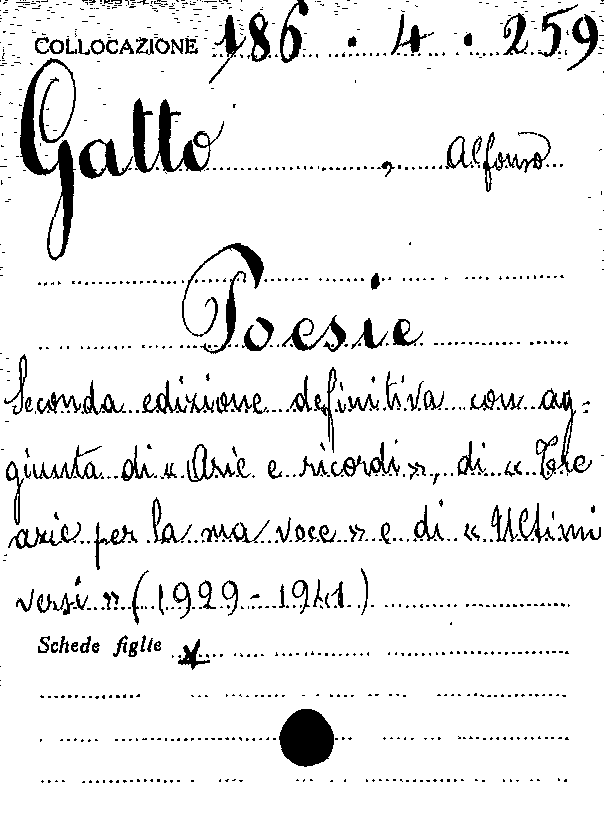 COLLOCAZIONE 186.4.259
Gatto, Alfonso
Poesie
Seconda edizione definitiva con ag-
giunta di « Arie e ricordi », di « Tre
arie per la sua voce » e di « Ultimi
versi » (1929-1941)
Schede figlie x